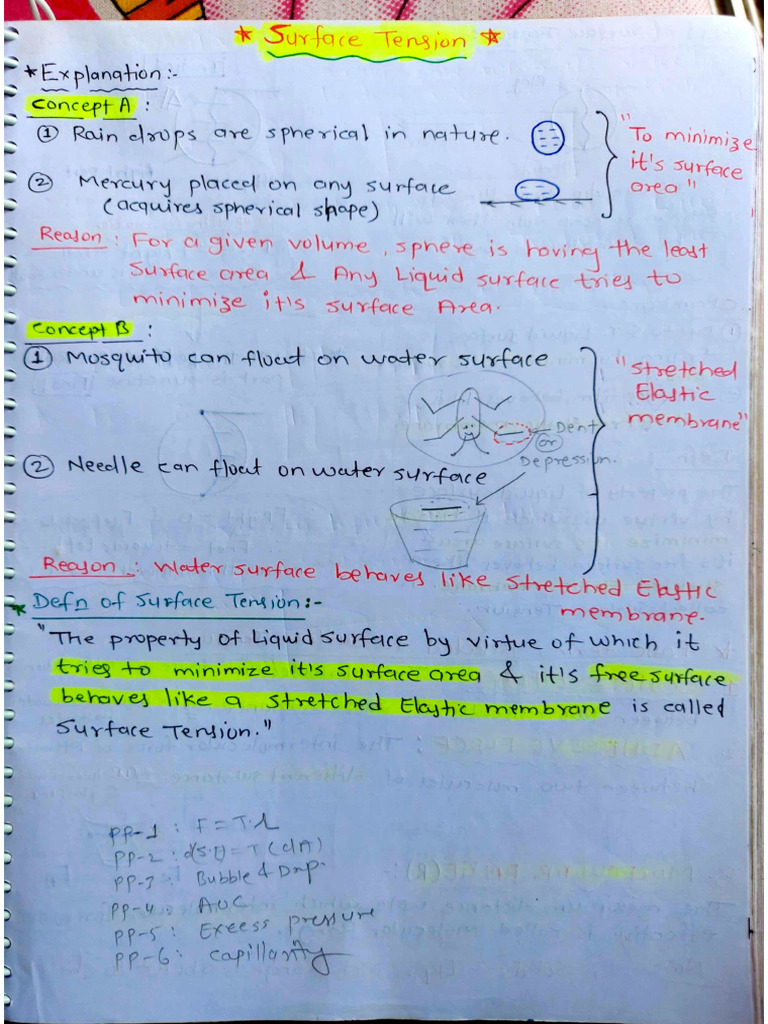 * Surface Tension *
* Explanation:-
Concept A :
① Rain drops are spherical in nature.
② Mercury placed on any surface
(acquires spherical shape)
"To minimize
it's surface
area"
Reason : For a given volume, sphere is having the least
surface area & Any Liquid surface tries to
minimize it's surface Area.
Concept B :
① Mosquito can float on water surface
"stretched
Elastic
membrane"
Dent
(or)
Depression.
② Needle can float on water surface
Reason : Water surface behaves like stretched Elastic
membrane.
* Defn of Surface Tension:-
"The property of Liquid surface by virtue of which it
tries to minimize it's surface area & it's free surface
behaves like a stretched Elastic membrane is called
Surface Tension."
PP-1 : F = T.L
PP-2 : d(S.E) = T (dA)
PP-3 : Bubble & Drop.
PP-4 : AOC
PP-5 : Excess pressure
PP-6 : Capillarity